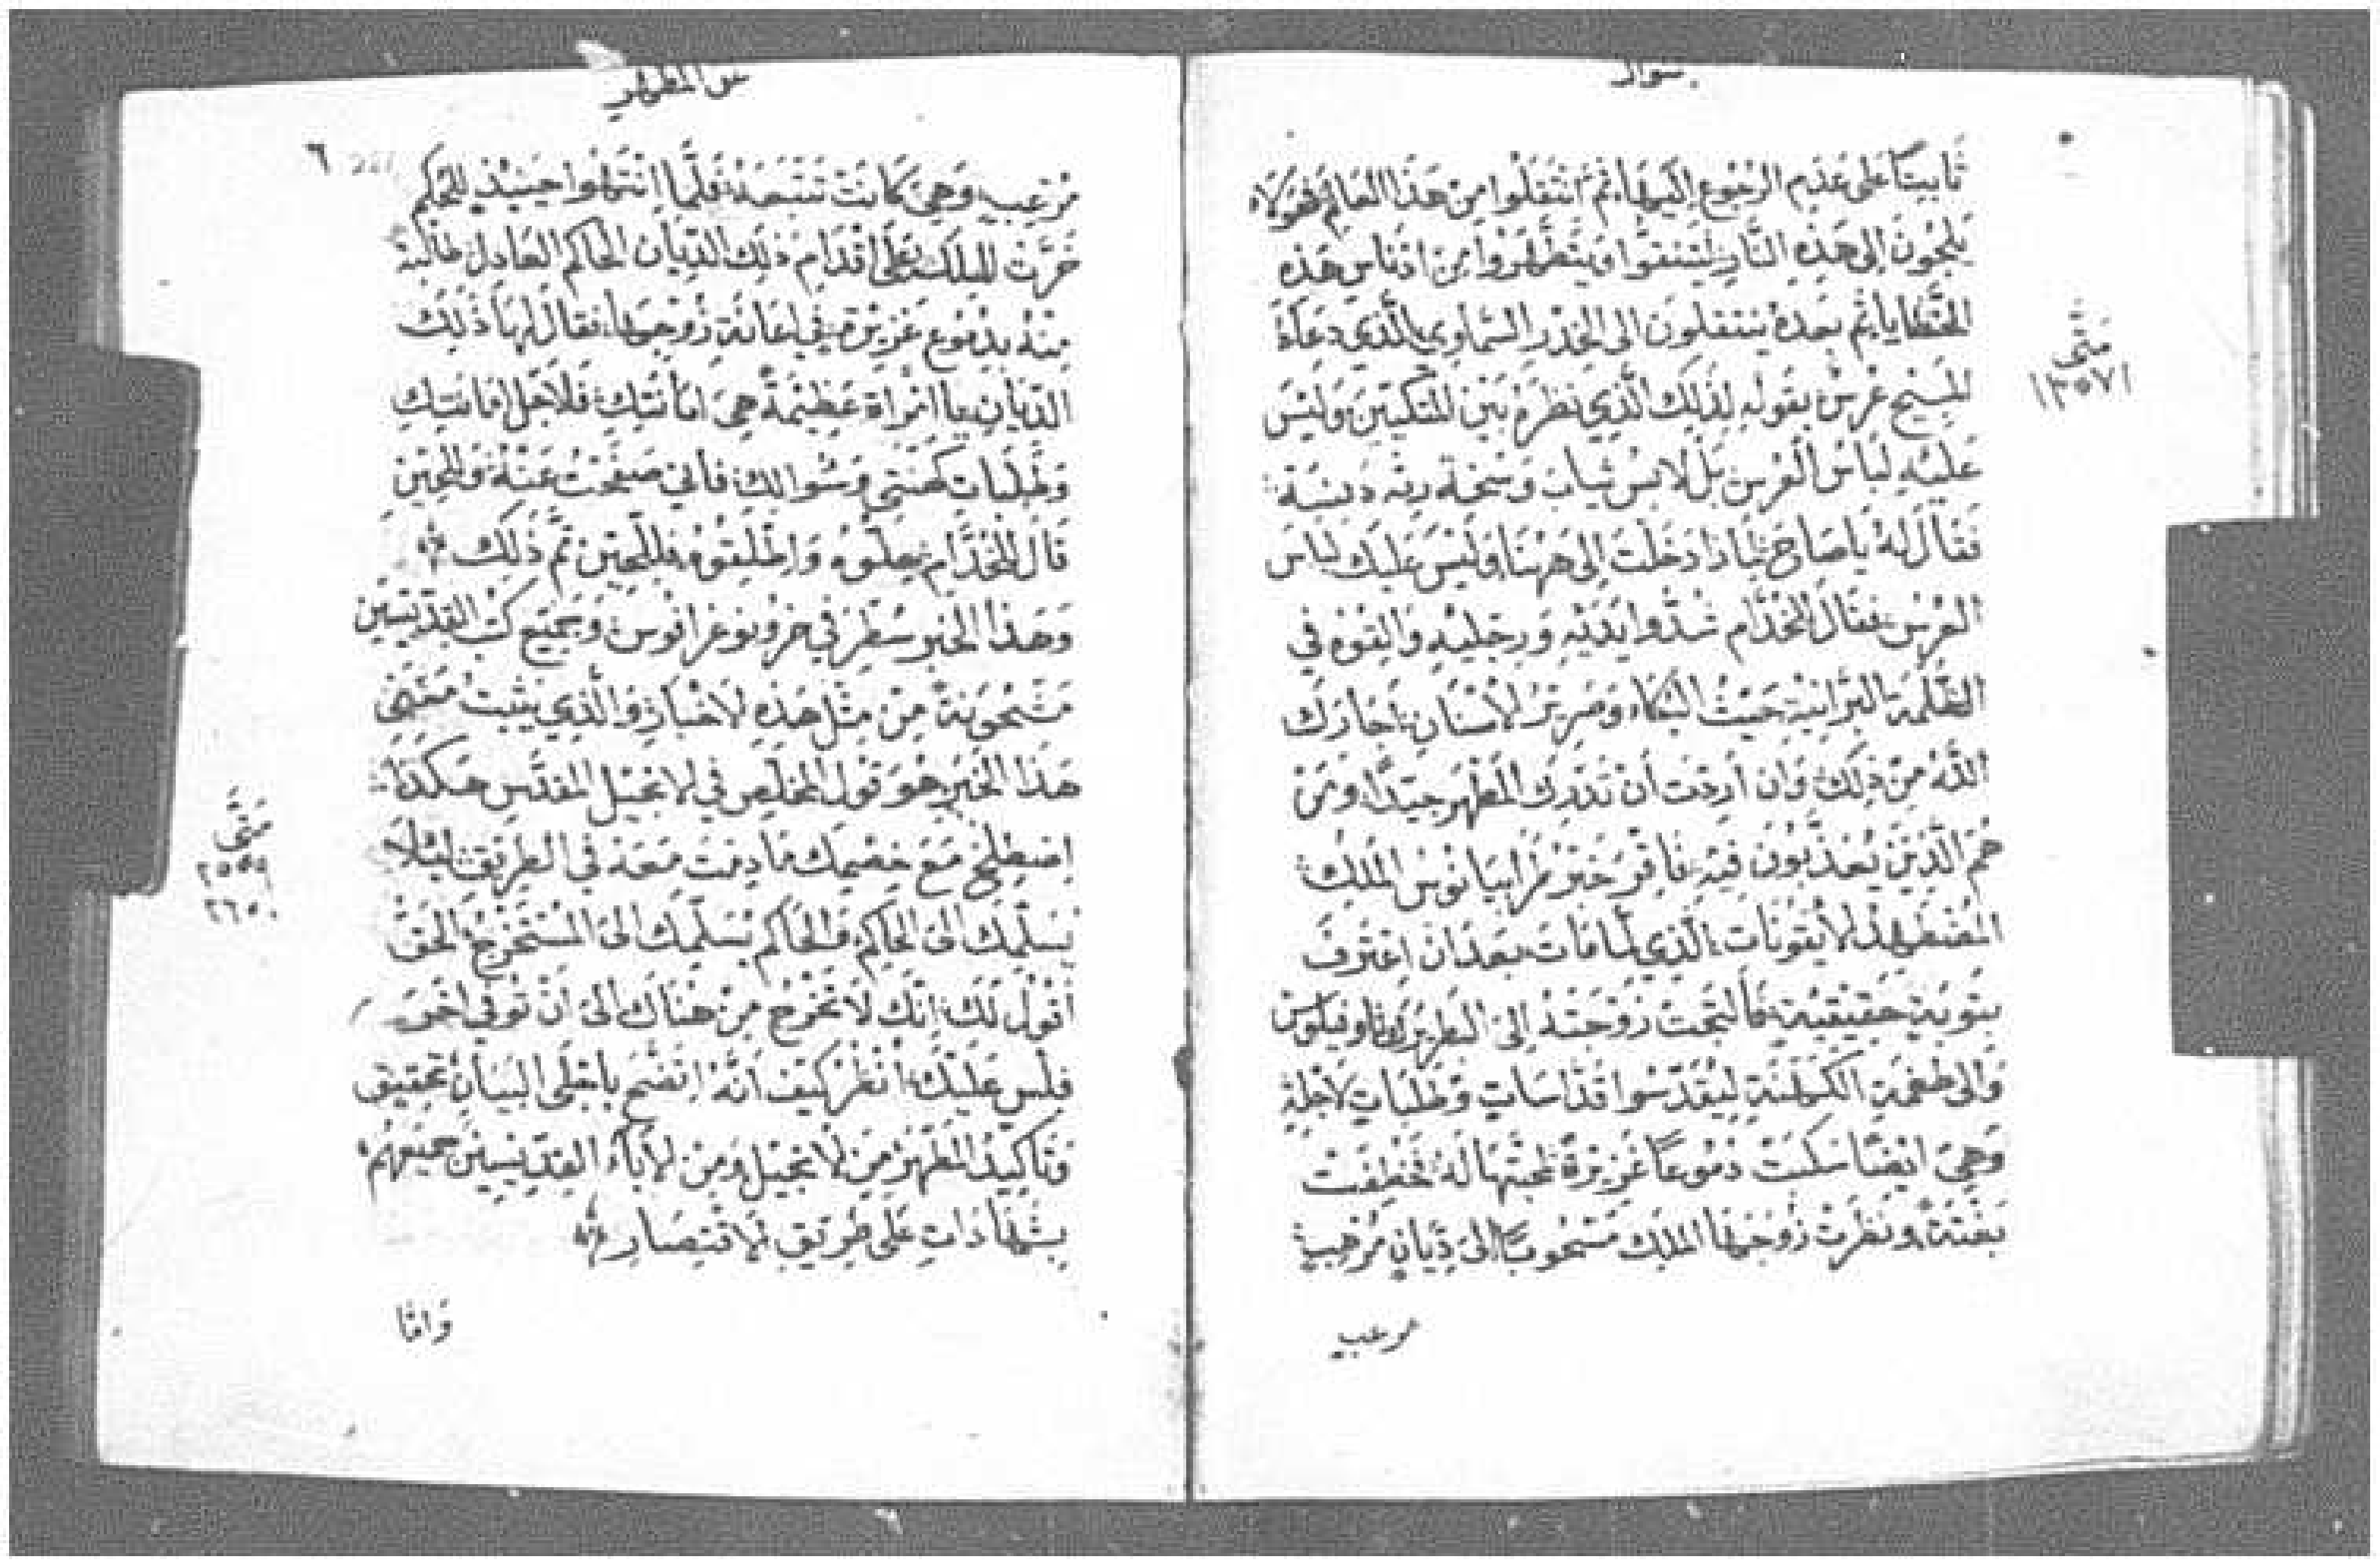 سوال
ثَابِيتًا عَلى عَدَم الرجُوع إليهَا ثم انتَقَلوا من هَذا العَالم فهَولاء
يلجون الى هَذِه النَّار ليتنقوا ويتَطَهَّرُوا من ادنَاس هَذه
الخَطايَا ثم بَعدَهُ ينتقلون الى الخدر السَّماوي الَّذي دعَاهُ
المسيح عُرسٌ بقوله لِذَلك الَّذي نظرَهُ بَين المتكيينَ وَليسَ
عَليه لبَاسُ العُرس بَل لابس ثيَاب وسخة رثه دنسَة
فقَالَ لهُ يَا صَاح لمَاذا دَخَلتَ إلى هَهنَا وَليسَ عَليك لباس
العُرس فقَالَ للخدَّام شدُّوا يَديه وَرجليه وَالقوه في
الظلمَة البرَّانية حَيثُ البُكاء وصَرير الأسنَان اجَارَكَ
اللَّهُ من ذلك وَان أردت أن تدرك المَطهَر جيّدًا ومَن
هُم الَّذينَ يُعذَّبُون فيه فاقر خبَر طرابيَانوس المَلك
المضطهد لأيقونَات الَّذي لما مَاتَ بعدَ ان اعترفَ
بتوبَة حَقيقيَّة فالتجت زوجَتهُ إلى البطريرك ماوفيلوس
وَالى طغمة الكهنة ليُقَدّسُوا قدَّاسَاتٍ وَطلبَاتٍ لاجله
وَهيَ ايضًا سَكبَت دمُوعًا غزيرَة لمحبّتهَا لَهُ فخطفت
بَغتةً ونَظرت زوجهَا الملك مَسْحوبًا الى ديَانٍ مُرهبٍ
مرعب
متى
عن المطهر
٦
مُرعبٍ وَهيَ كانَت تتبعَهُ فلمَّا انتَهوا حينيذ للحكم
خَرَّت الملكة عَلى اقدَام ذلك الدّيان الحَاكم العَادل طالبة
منهُ بدمُوع غزيرَة في اعَانة زوجهَا فقَالَ لهَا ذلك
الدّيان يا امرَاة عَظيمَةٌ هيَ امَانَتِك فلاجل امَانتِك
وَطلبَات كهنتي وسُوالك فاني صَفحتُ عَنهُ وَللحين
قالَ للخدَّام حلّوهُ وَاطلِقوهُ فللحين تم ذَلك
وَهذا الخبر سُطرَ في خرونوغرافوس وَجميع كتب القدّيسين
مَشحونة من مثل هَذه لاخبار والَّذي يثبتُ مَعنى
هَذا الخَبر هوَ قول المخلّص في لانجيل المقدَّس هَكذا
اصطلح مَعَ خصمك مَا دمت مَعَهُ في الطريق ليلا
يُسَلّمك الى الحَاكم وَالحَاكم يُسَلّمك الى المستخرج الحق
أقول لكَ إنّك لا تخرج من هُنَاك الى أن توفي اخر
فلسٍ عَليك أنظر كيفَ أنَّهُ اتضَح باجلى البيَان تحقيق
وَتاكيدُ المَطهَر من لانجيل وَمن لابَاء القدّيسينَ جميعهُم
بشهَادَاتٍ عَلى طريق لاقتِصَار
متى
وَامَّا